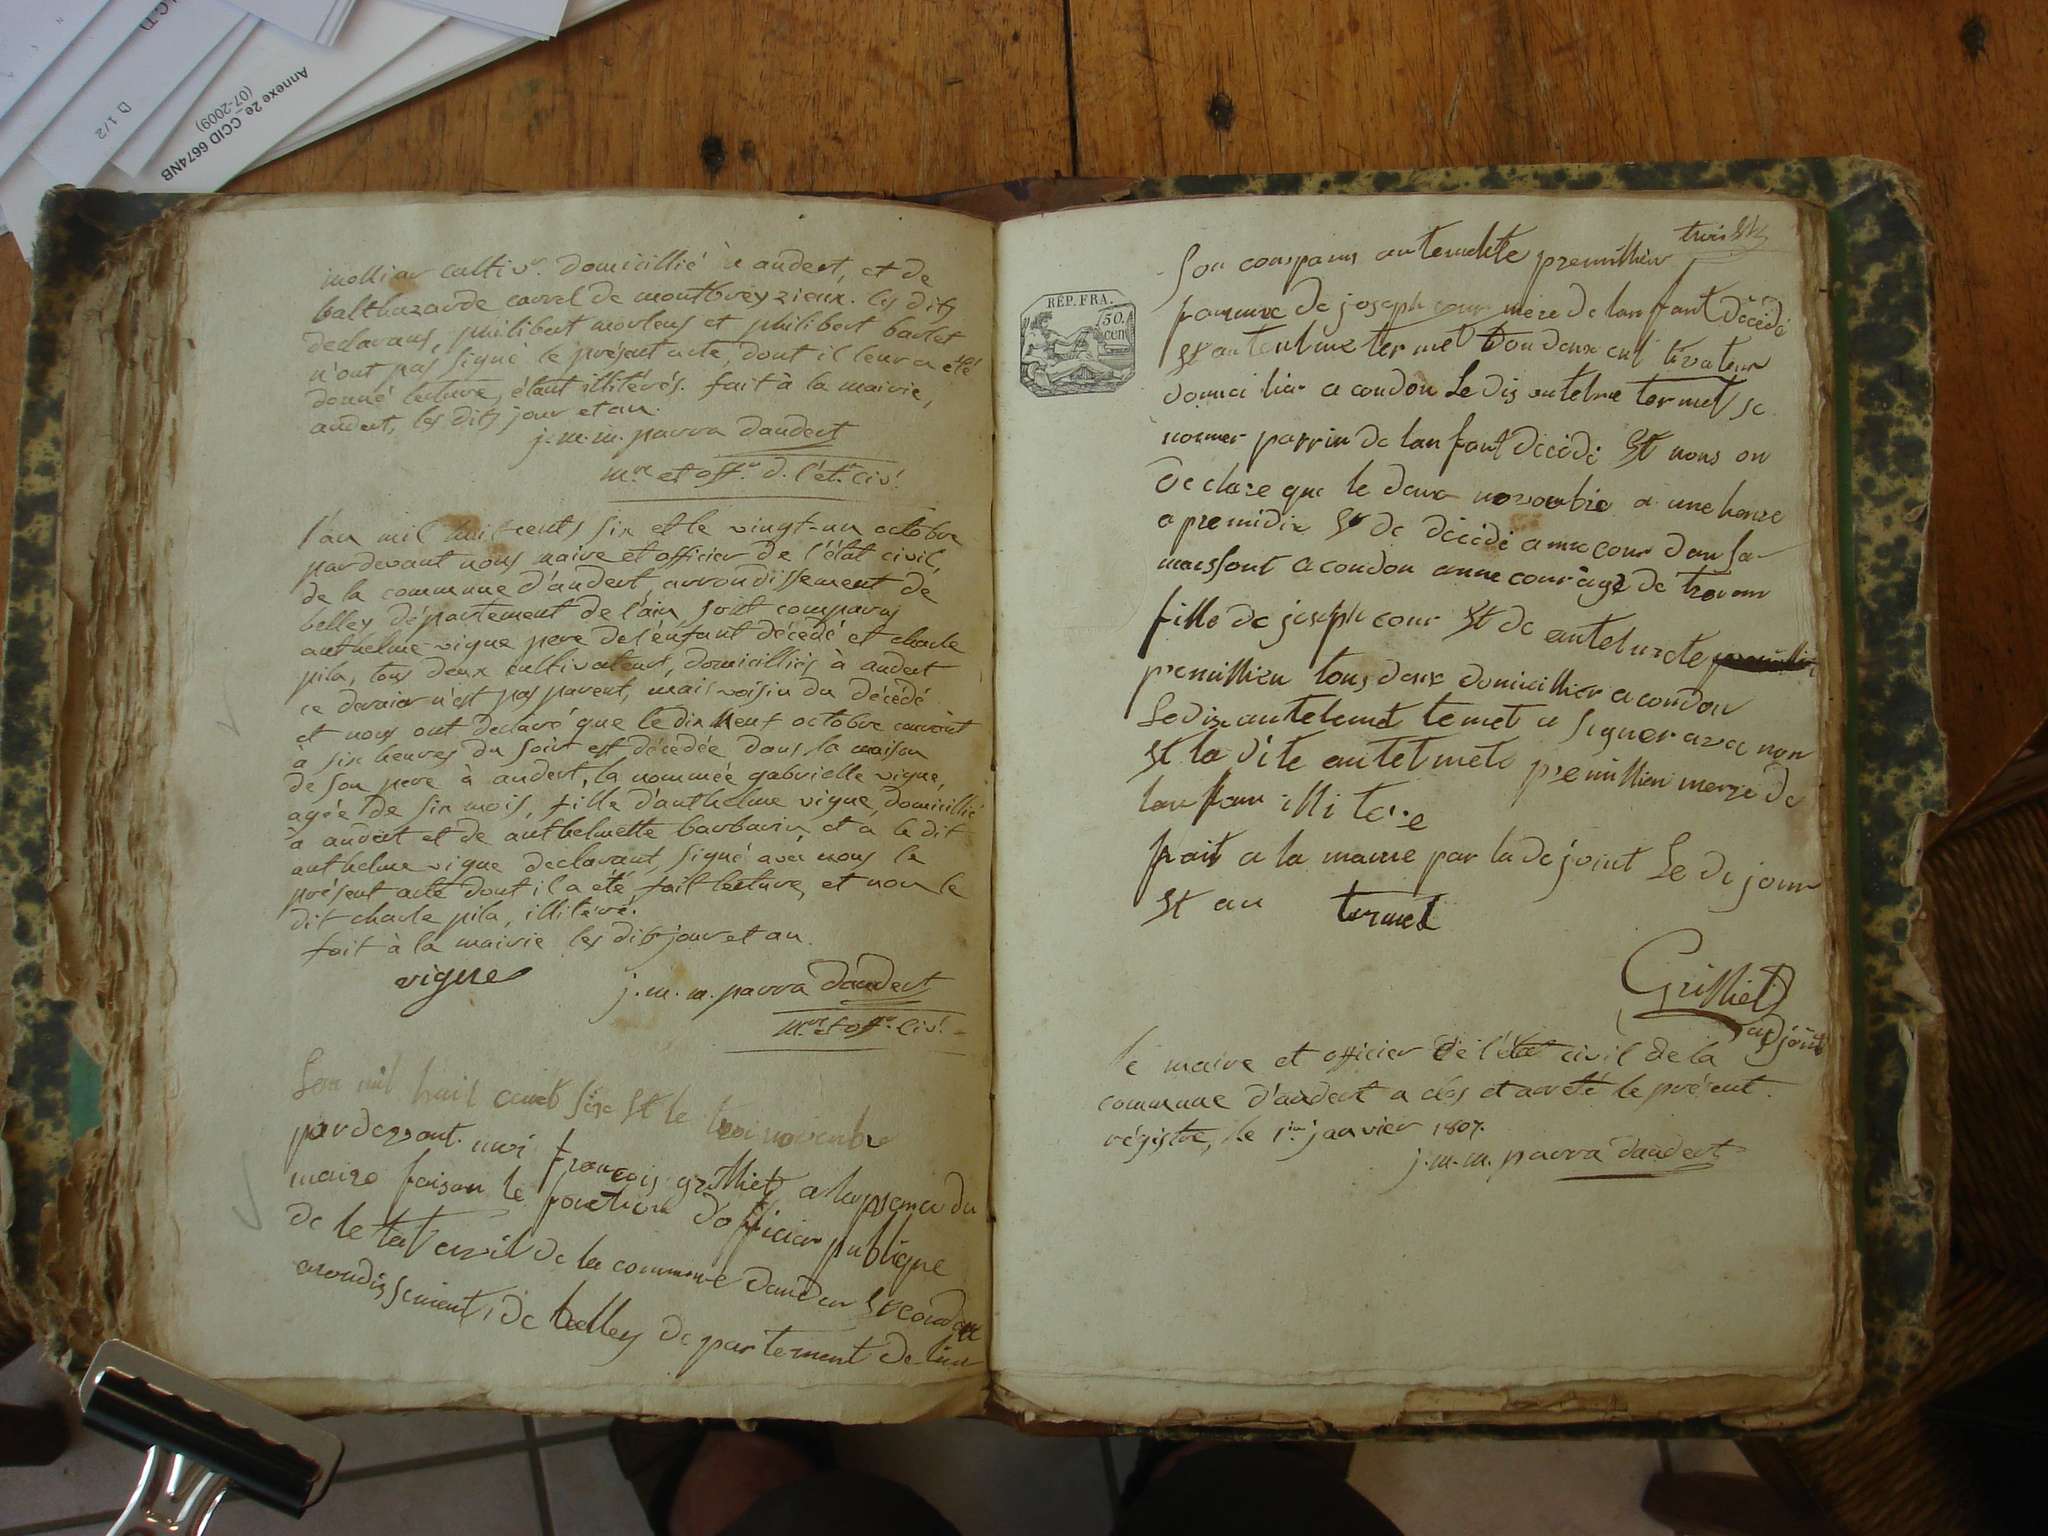 Annexe 2e_CCID 6674NB
(07-2009)
D 1/2
molliar cultivr. domicillié à andert, et de
balthazarde carrel de montbreyzieux. les dits
declarans, philibert morlens et philibert barlet
n'ont pas signé le présent acte, dont il leur a été
donné lecture, étant illitérés. fait à la mairie,
andert, les dits jour et an.
j. m. m. parra dandert
mre et offr. d. l'ét. civl.
l'an mil huit cents six et le vingt-un octobre
pardevant nous maire et officier de l'état civil,
de la commune d'andert, arrondissement de
belley département de l'ain sont comparus
anthelme vigne pere de l'enfant décédé et charle
pila, tous deux cultivateurs, domicilliés à andert
ce dernier n'est pas parent, mais voisin du décédé
et nous ont declaré que le dix neuf octobre courant
à six heures du soir est décédée dans la maison
de son pere à andert, la nommée gabrielle vigne,
agée de six mois, fille d'anthelme vigne domicillié
à andert et de anthelmette barbarin, et a le dit
anthelme vigne declarant, signé avec nous le
présent acte dont il a été fait lecture, et non le
dit charle pila, illitéré.
fait à la mairie les dits jour et an.
vigne
j. m. m. parra dandert
mre et offr. civl.
Lon mil huit cent six et le troi novenbre
pardezvant moi francois grilliet a la psance du
maire faisan le fonction d'officier publique
de le tat civil de la commune dandert et condon
arondissement de belley de partement de lin
trois
son conparus antelmette premillieu
RÉP. FRA.
50.
cen
famme de joseph cour mere de lan fant décédé
et antelme termet tou deux cul tivateur
domici lier a condon Le dis antelme termet se
nomer parrin de lan fant décédé et nous on
declare que le deux novonbre a une heure
apremidix et de décédé anne cour dan sa
maissont a condon anne cour age de trois an
fille de joseph cour et de antelmete
premillieu tous deux domicillier a condon
Le dix antelme termet a signer avec non
et la dite antelmete premillieu merze de
lan fan illitere
fait a la mairie par la dejoint Le di jour
et an
termet
Grilliet
adjoint
le maire et officier de l'état civil de la
commune d'andert a clos et arreté le présent
régistre, le 1er janvier 1807.
j. m. m. parra dandert